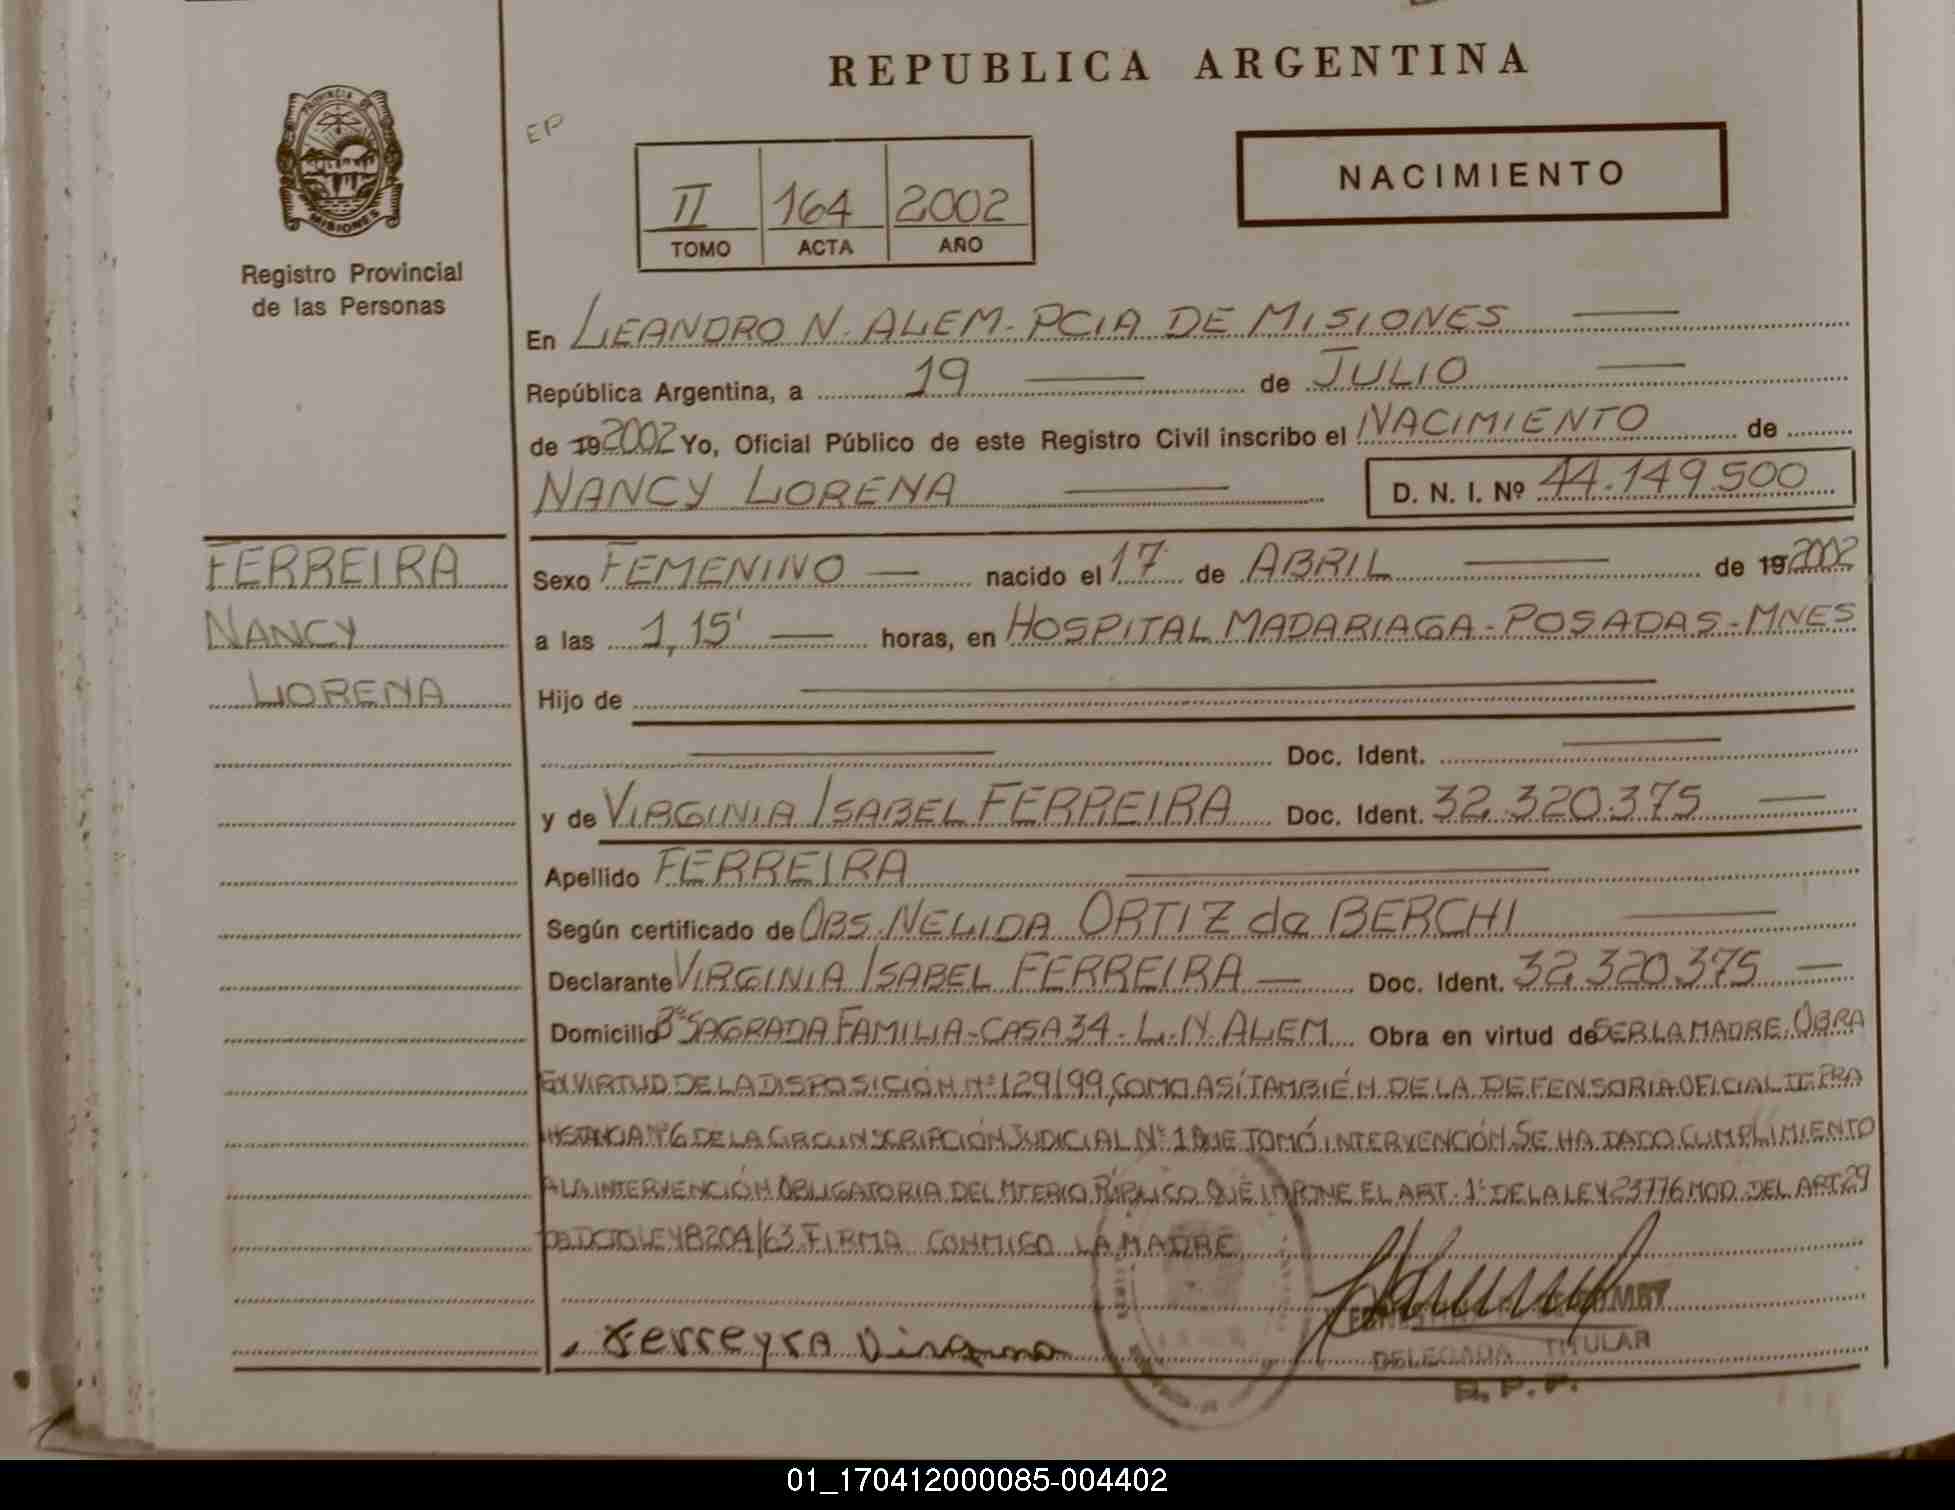 REPUBLICA ARGENTINA
PROVINCIA DE MISIONES
Registro Provincial
de las Personas
EP
II 164 2002
TOMO ACTA AÑO
NACIMIENTO
En LEANDRO N. ALEM - PCIA DE MISIONES
República Argentina, a 19 de JULIO
de 19 2002 Yo, Oficial Público de este Registro Civil inscribo el NACIMIENTO de
NANCY LORENA D. N. I. Nº 44.149.500
FERREIRA
NANCY
LORENA
Sexo FEMENINO nacido el 17 de ABRIL de 19 2002
a las 1,15' horas, en HOSPITAL MADARIAGA - POSADAS - MNES
Hijo de
Doc. Ident.
y de VIRGINIA ISABEL FERREIRA Doc. Ident. 32.320.375
Apellido FERREIRA
Según certificado de OBS. NELIDA ORTIZ de BERCHI
Declarante VIRGINIA ISABEL FERREIRA Doc. Ident. 32.320.375
Domicilio Bº SAGRADA FAMILIA - CASA 34 - L. N. ALEM Obra en virtud de SER LA MADRE. OBRA
EN VIRTUD DE LA DISPOSICIÓN Nº 129/99, COMO ASÍ TAMBIÉN DE LA DEFENSORIA OFICIAL DE PRA
INSTANCIA Nº 6 DE LA CIRCUNSCRIPCIÓN JUDICIAL Nº 1 QUE TOMÓ INTERVENCIÓN. SE HA DADO CUMPLIMIENTO
A LA INTERVENCIÓN OBLIGATORIA DEL MTERIO PÚBLICO QUE IMPONE EL ART. 1º DE LA LEY 23776 MOD. DEL ART 29
DEL DCTO LEY 8204/63. FIRMA CONMIGO LA MADRE
Ferreyra Virginia
DELEGADA TITULAR
R. P. P.
01_170412000085-004402